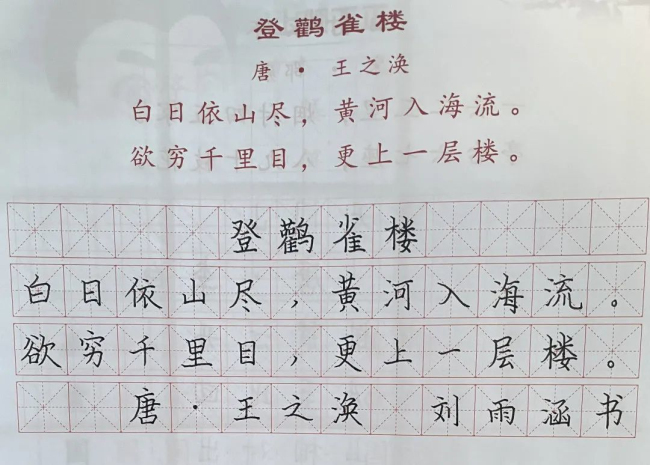 登鹳雀楼
唐 · 王之涣
白日依山尽，黄河入海流。
欲穷千里目，更上一层楼。
登鹳雀楼
白日依山尽，黄河入海流。
欲穷千里目，更上一层楼。
唐·王之涣 刘雨涵书